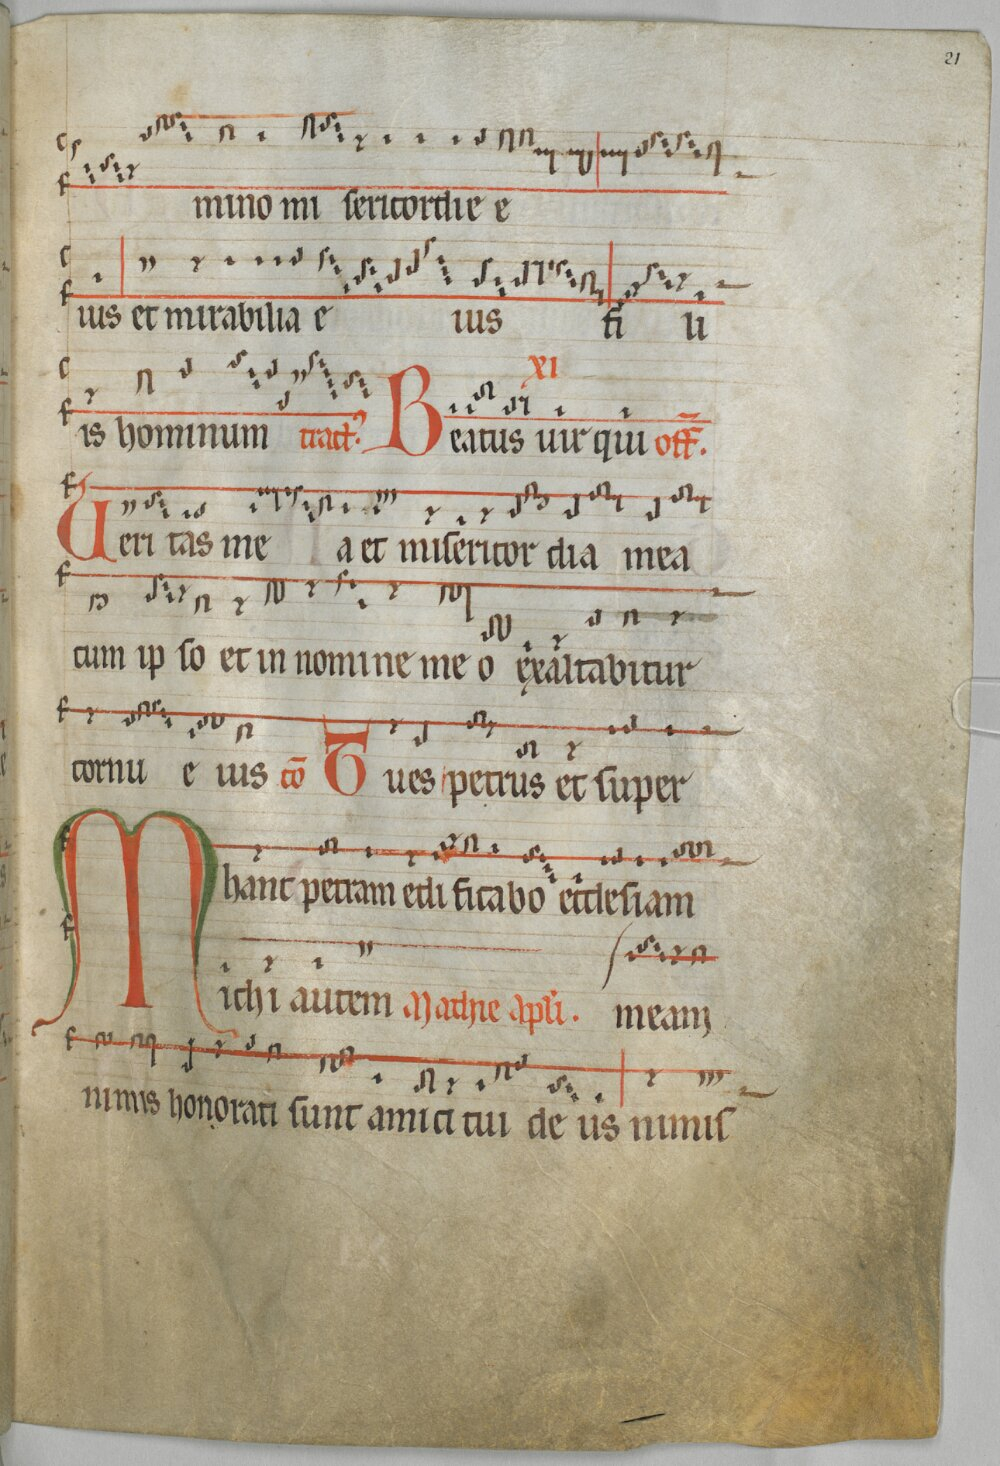 21
mino mi sericordie e
ius et mirabilia e ius fi li
XI
is hominum tract. Beatus uir qui off.
Ueri tas me a et misericor dia mea
cum ip so et in nomine me o exaltabitur
cornu e ius cō Tu es petrus et super
hanc petram edi ficabo ecclesiam
Michi autem Mathie apli. meam
nimis honorati sunt amici tui de us nimis